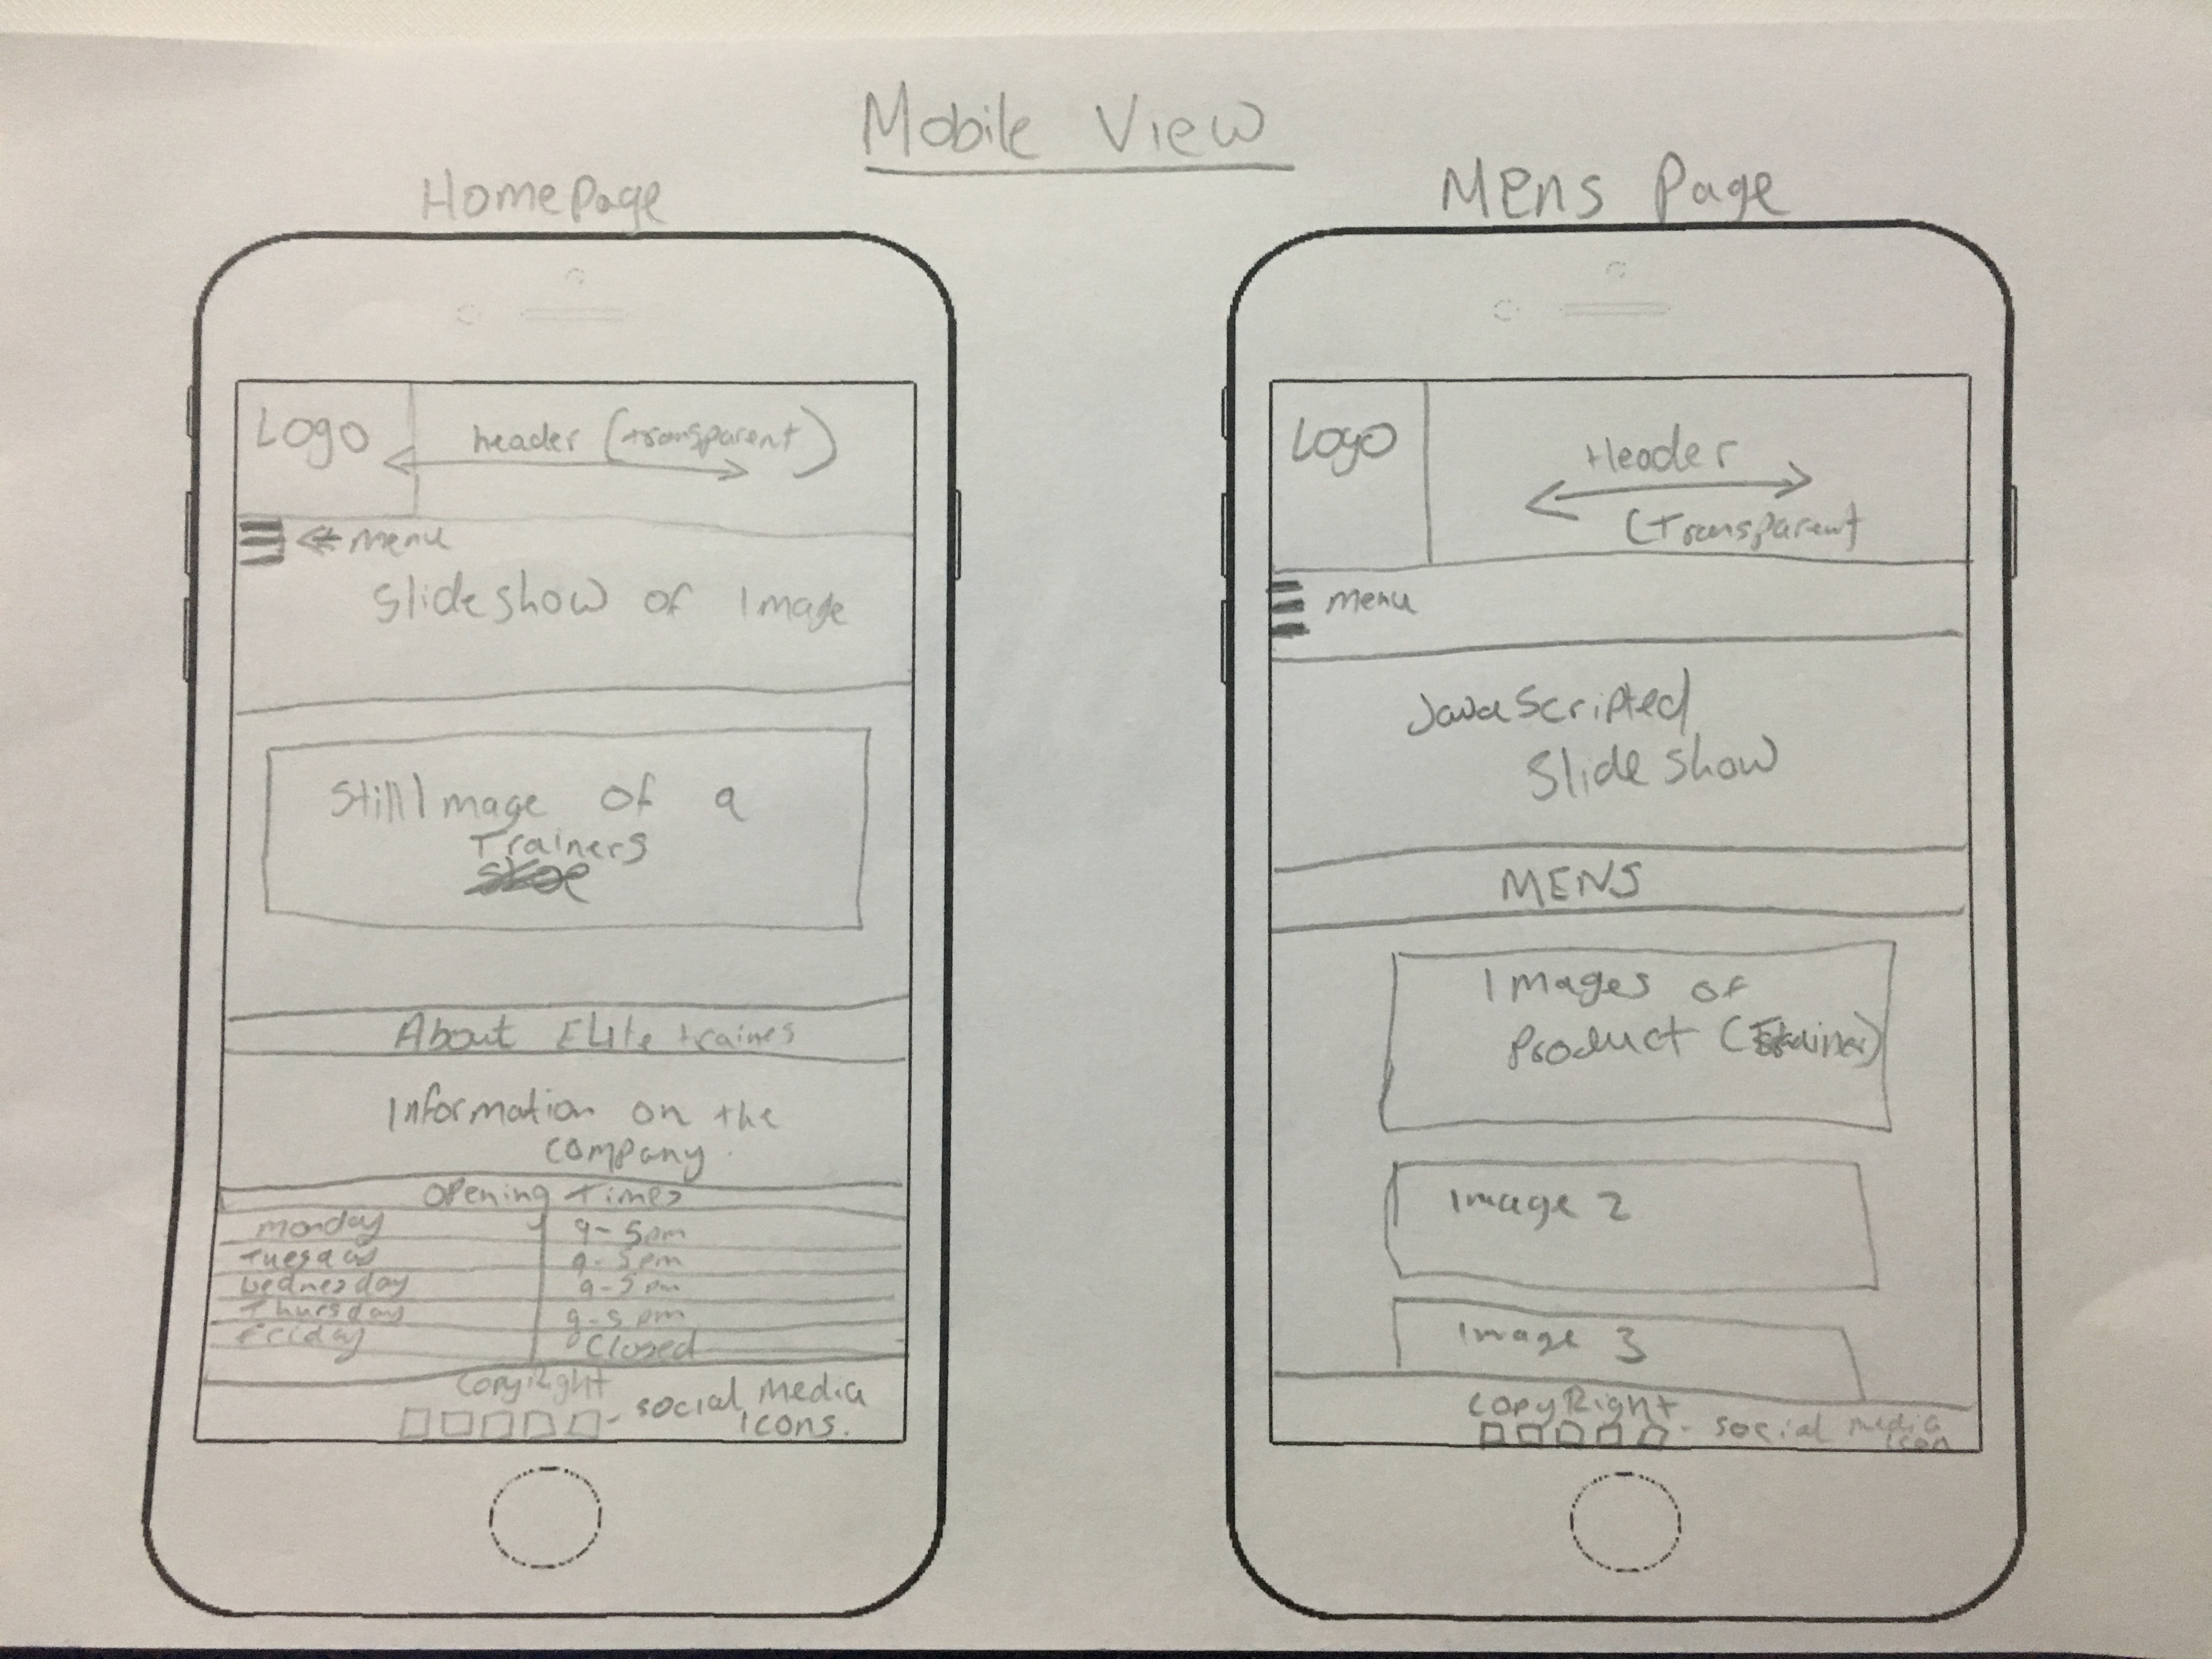 Mobile View
HomePage
Logo
header (transparent)
menu
Slideshow of Image
Still Image of a
Trainers
About Elite traines
Information on the
company.
Opening Times
Monday 9-5pm
Tuesday 9-5pm
Wednesday 9-5pm
Thursday 9-5pm
Friday Closed
CopyRight
- social Media
icons.
Mens Page
Logo
Header
(Transparent)
menu
JavaScripted
Slide show
MENS
Images of
Product (Trainer)
Image 2
Image 3
CopyRight
- social media
icon